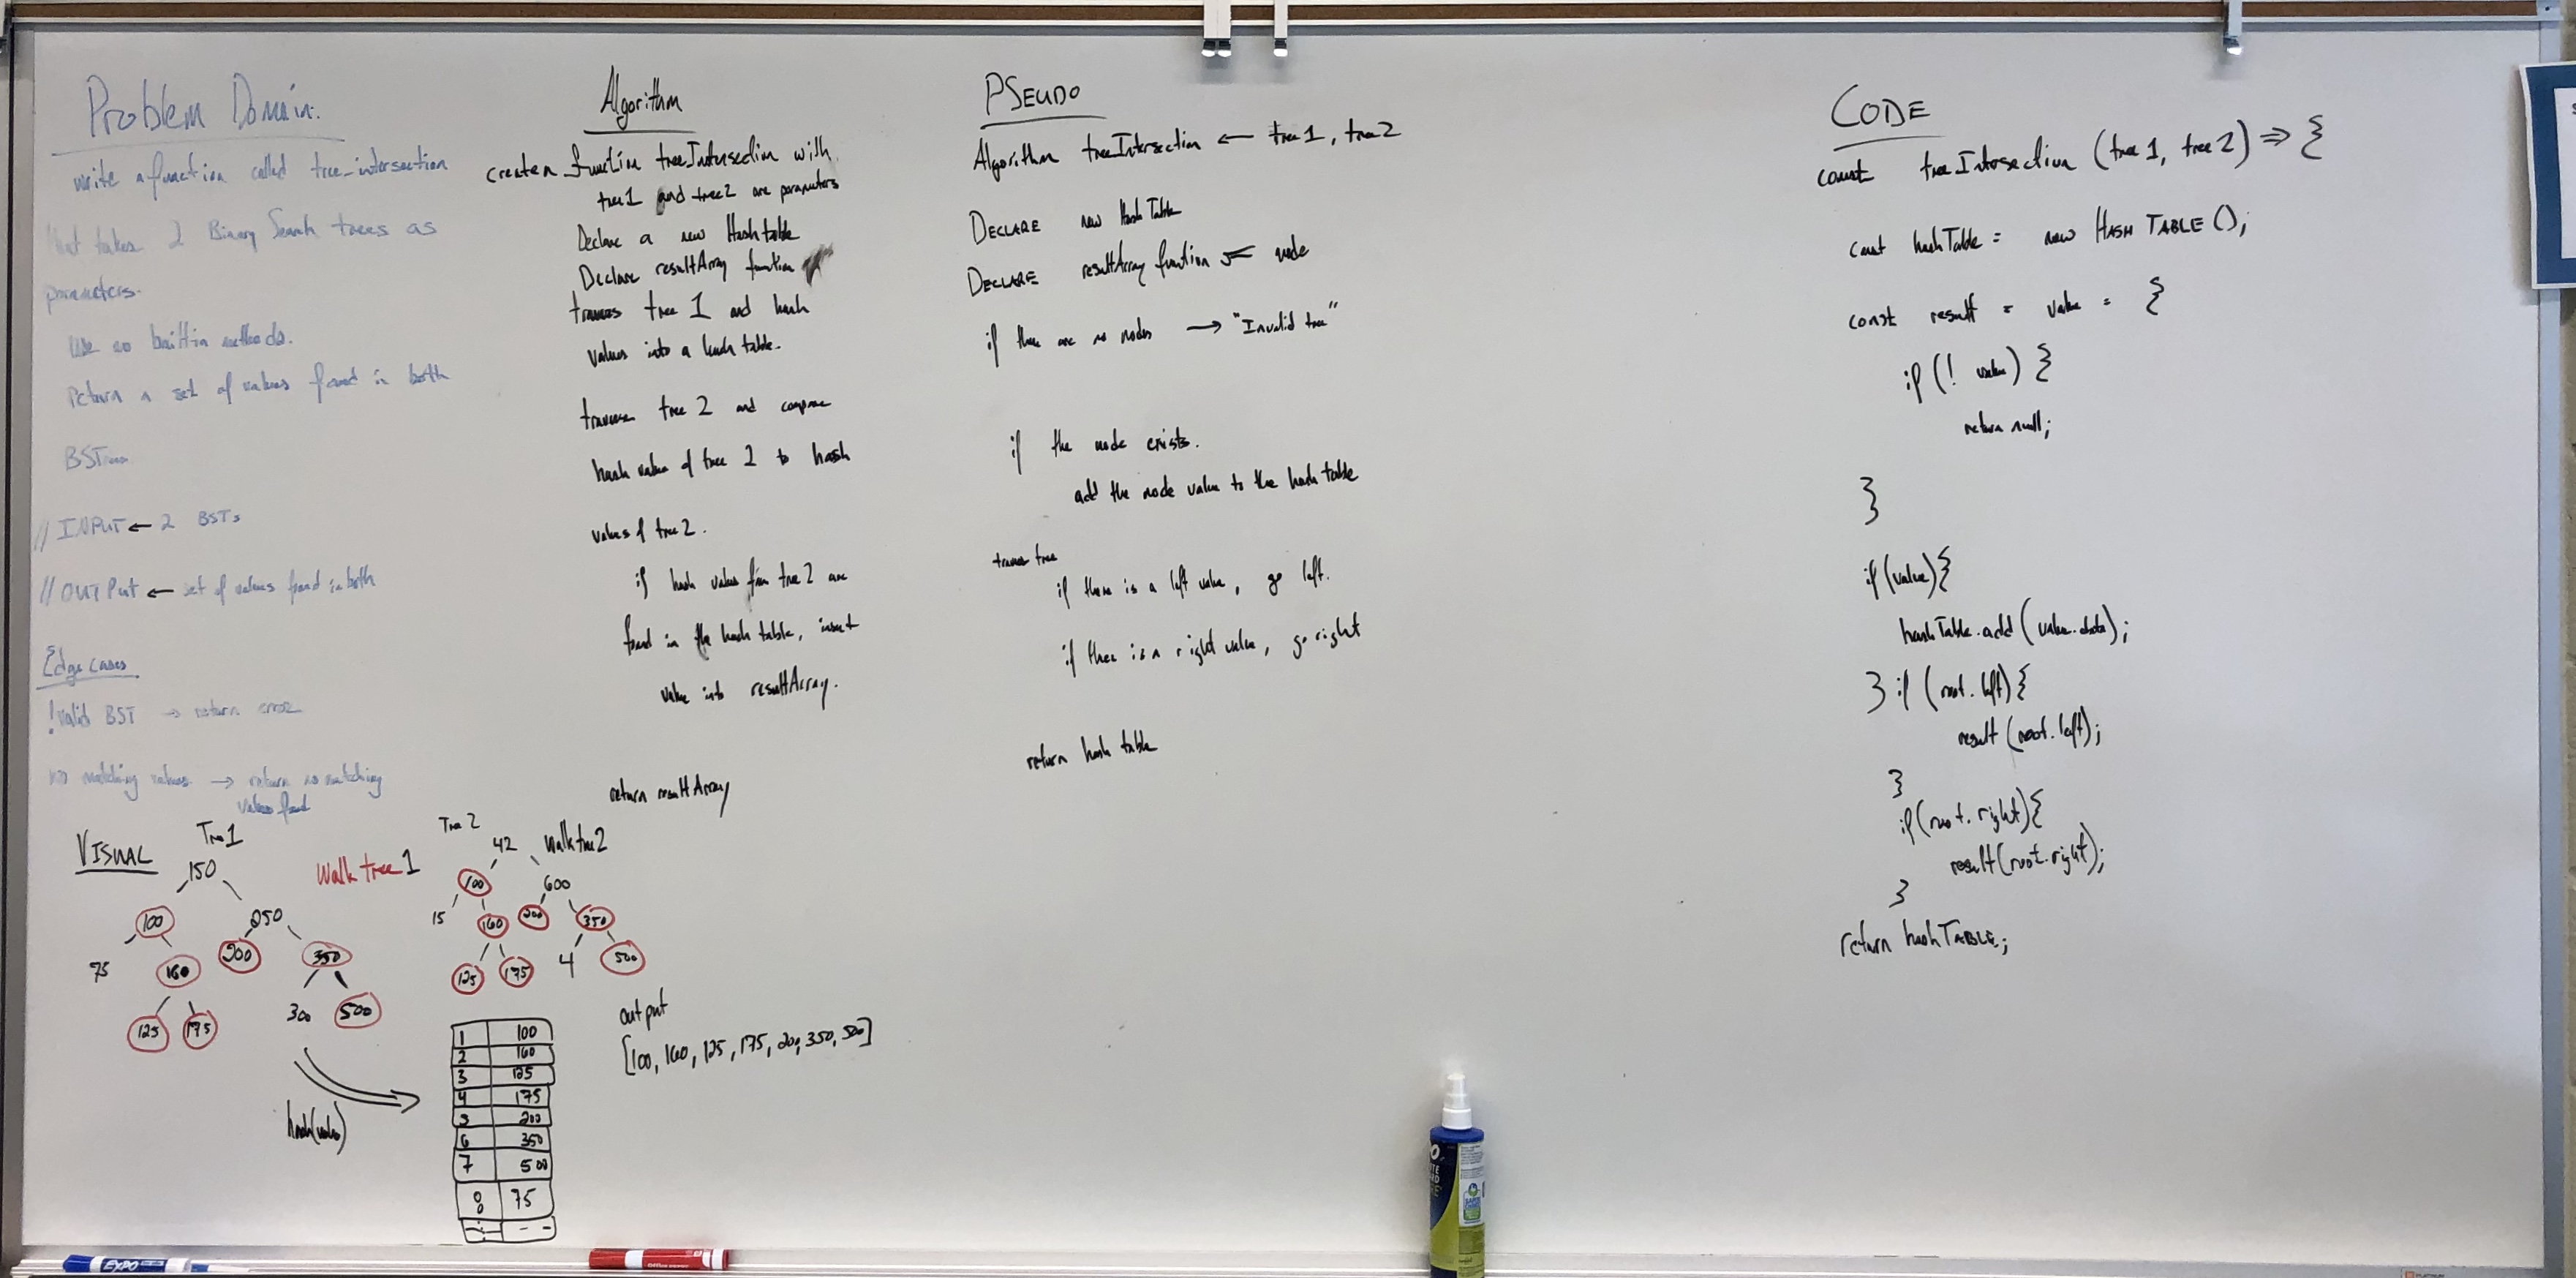 Problem Domain:
write a function called tree_intersection
that takes 2 Binary Search trees as
parameters.
Use no built-in methods.
Return a set of values found in both
BSTrees
// INPUT ← 2 BSTs
// OUTPut ← set of values found in both
Edge cases
!valid BST → return error
no matching values → return no matching
values found
VISUAL
Tree1
150
100
250
75
160
200
350
125
175
300
500
Walk tree 1
hash(value)
Tree 2
42
Walk tree2
100
600
15
160
200
350
125
175
4
500
1 100
2 160
3 125
4 175
5 200
6 350
7 500
8 75
output
[100, 160, 125, 175, 200, 350, 500]
Algorithm
create a function treeIntersection with
tree1 and tree2 are parameters
Declare a new Hashtable
Declare resultArray function
traverses tree 1 and hash
values into a hash table.
traverse tree 2 and compare
hash value of tree 2 to hash
values of tree 2.
if hash values from tree 2 are
found in the hash table, insert
value into resultArray.
return resultArray
PSEUDO
Algorithm treeIntersection ← tree 1, tree 2
DECLARE new HashTable
DECLARE resultArray function ← node
if there are no nodes → "Invalid tree"
if the node exists.
add the node value to the hash table
traverse tree
if there is a left value, go left.
if there is a right value, go right
return hash table
CODE
const treeIntersection (tree 1, tree 2) => {
const hashTable = new HASH TABLE ();
const result = value = {
if (! value) {
return null;
}
if (value) {
hashTable.add (value.data);
} if (root.left) {
result (root.left);
}
if (root.right) {
result (root.right);
}
return hashTABLE;
EXPO